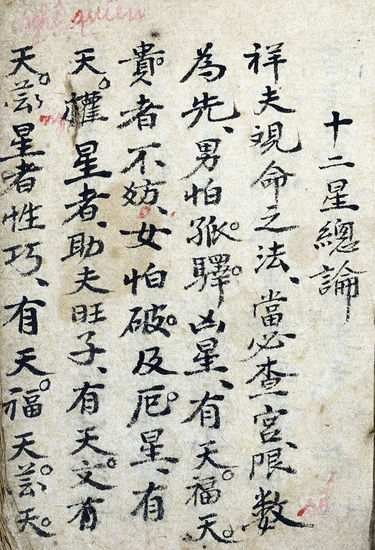 十二星總論
祥夫視命之法、當必查宮限數
為先、男怕孤。驛。凶星、有天福。天。
貴。者不妨、女怕破。及厄。星、有
天。權星者、助夫旺子、有天文。有
天。芸。星者性巧、有天。福天。芸。天。